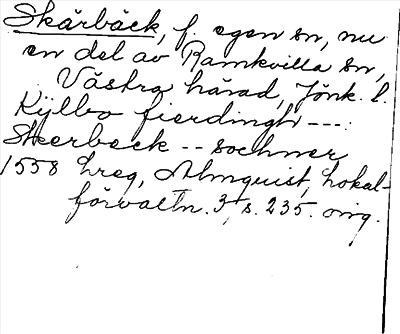 Skärbäck, f. egen sn, nu
en del av Ramkvilla sn,
Västra härad, Jönk. l.
Kyllbo fierdingh ---:
Skerbeck -- sochner
1558 hreg, Almquist, Lokal-
förvaltn. 3, s. 235. orig.